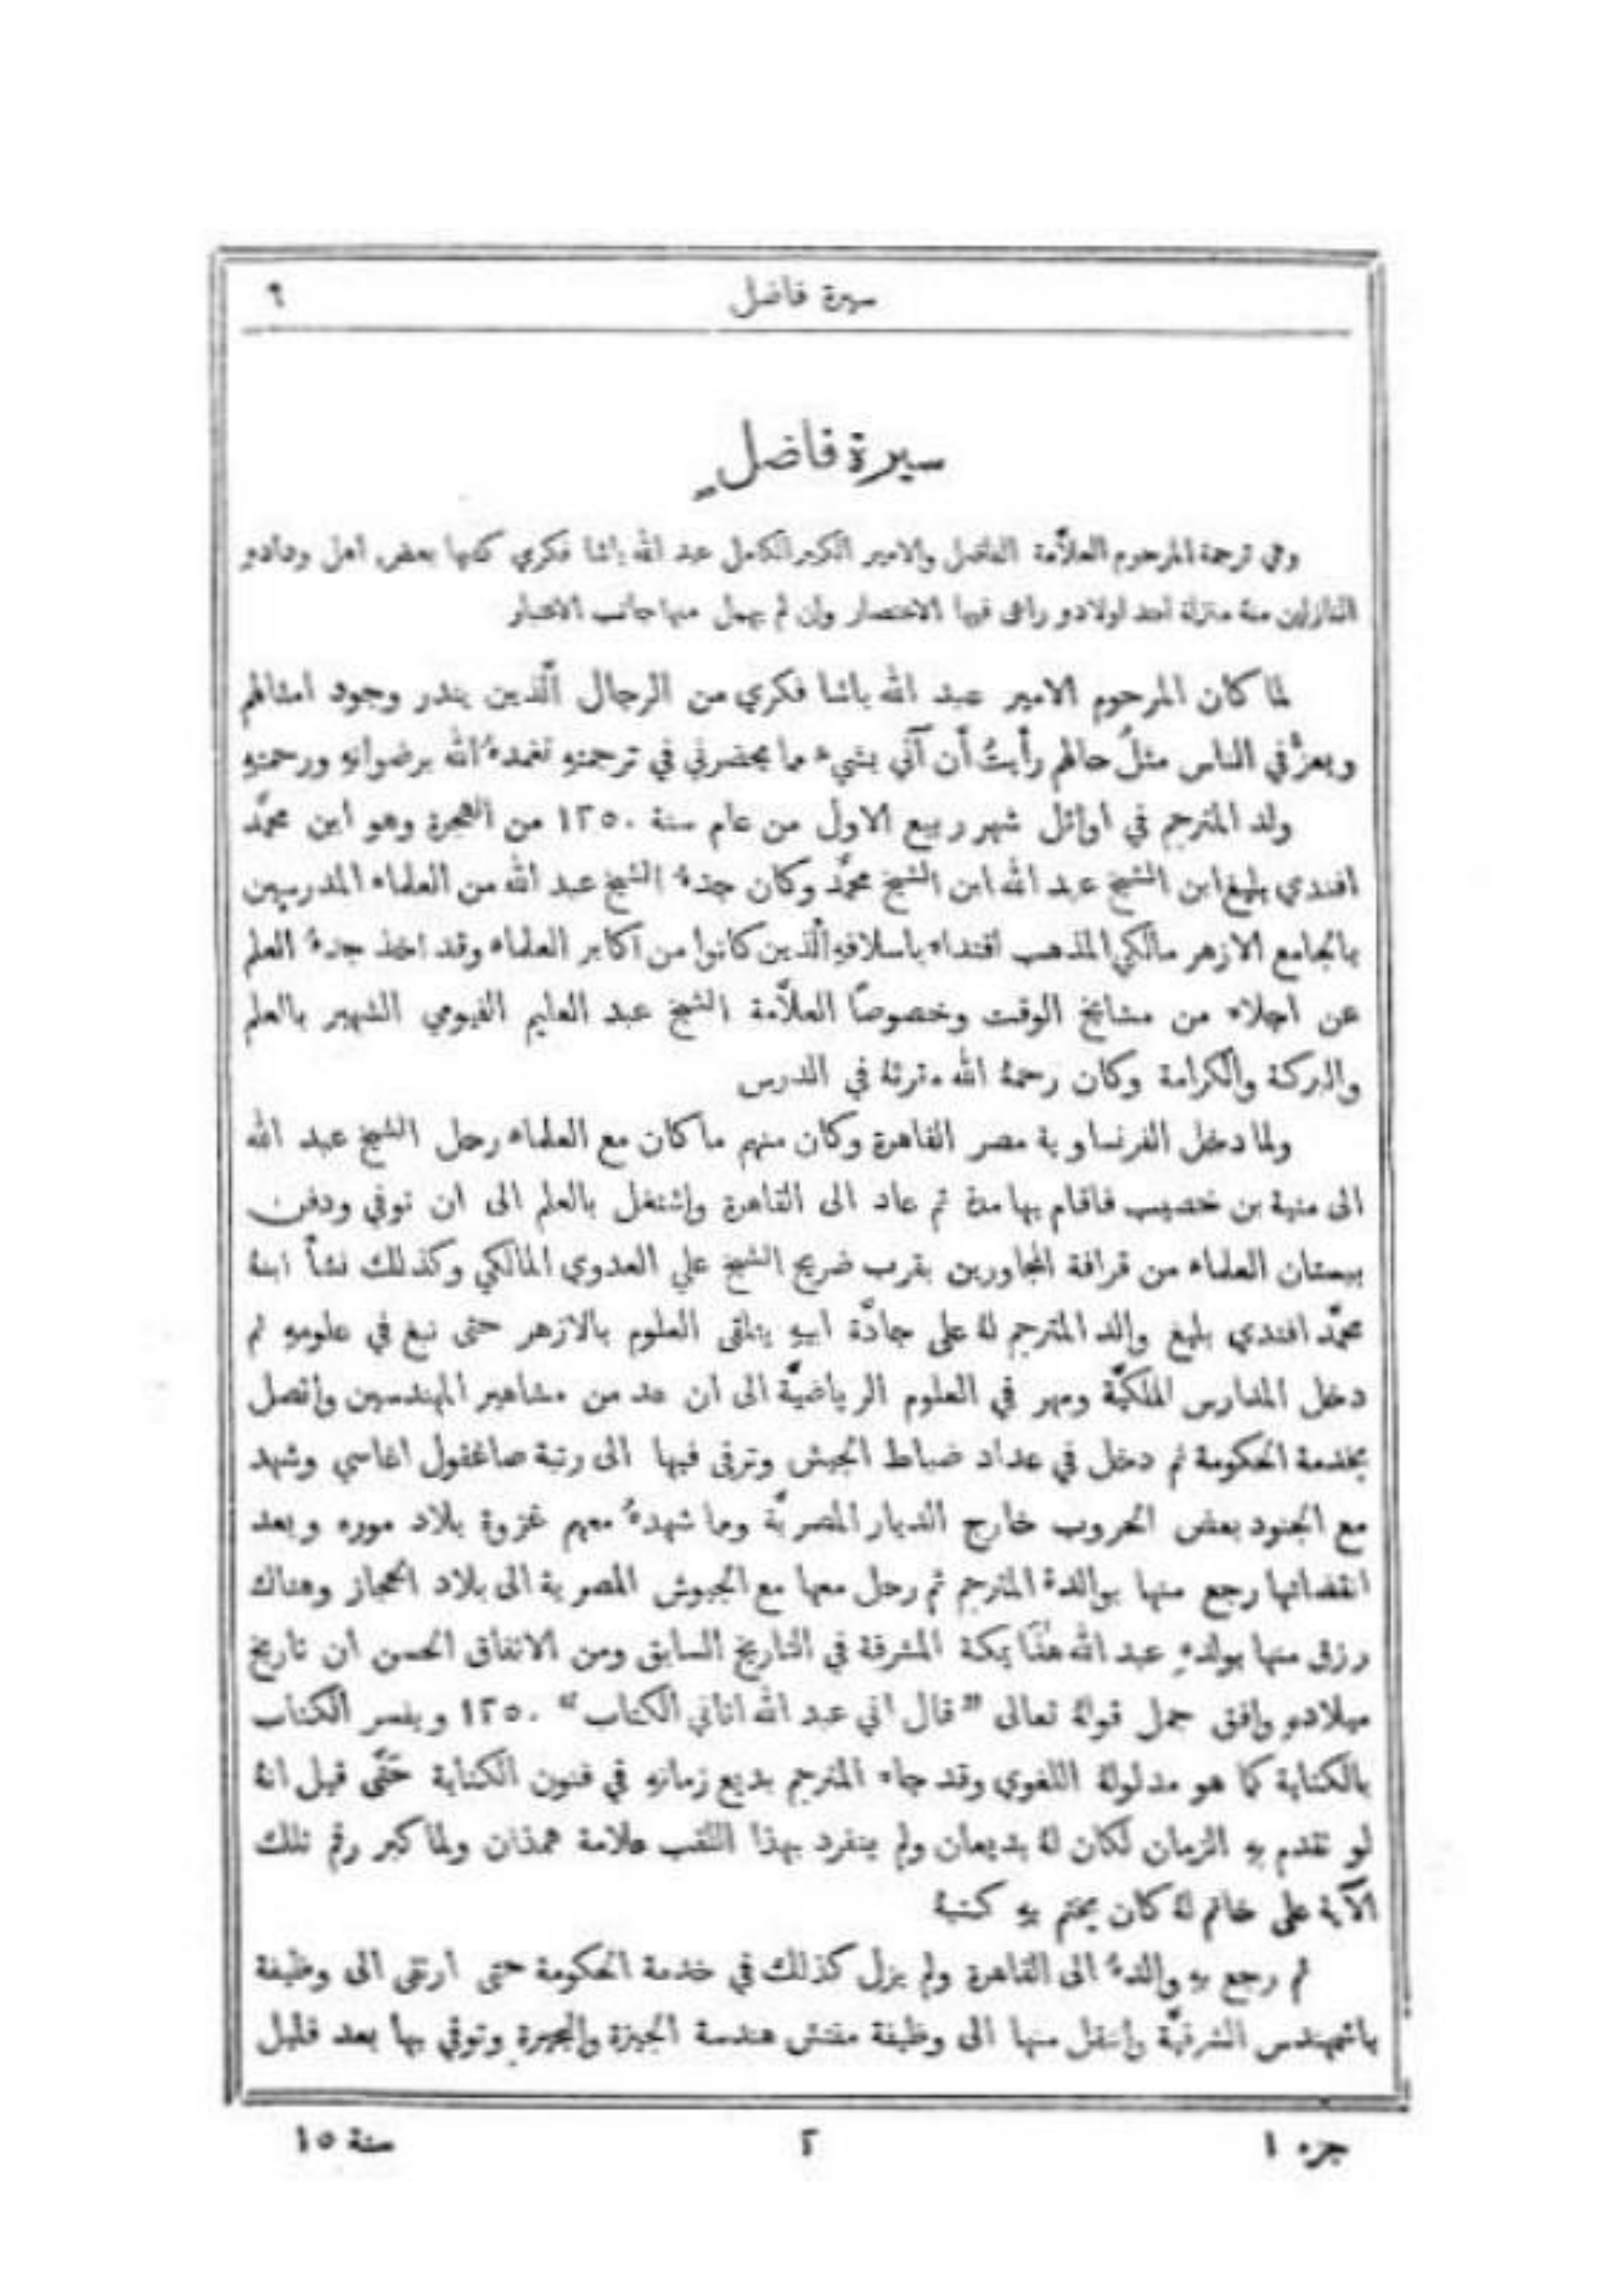 سيرة فاضل ٩
سيرة فاضل
وفي ترجمة المرحوم العلَّامة الفاضل والامير الكبير الكامل عبد الله باشا فكري كتبها بعض اهل ودادهِ
النازلين منهُ منزلة احد اولادهِ راعى فيها الاختصار وان لم يهمل منها جانب الاعتبار
لما كان المرحوم الامير عبد الله باشا فكري من الرجال الَّذين يندر وجود امثالهم
ويعزُّ في الناس مثلُ حالهم رأيتُ أن آتي بشيء مما يحضرني في ترجمتهِ تغمدهُ الله برضوانهِ ورحمتهِ
ولد المترجم في اوائل شهر ربيع الاول من عام سنة ١٢٥٠ من الهجرة وهو ابن محمَّد
افندي بليغ ابن الشيخ عبد الله ابن الشيخ محمَّد وكان جدهُ الشيخ عبد الله من العلماء المدرسين
بالجامع الازهر مالكي المذهب اقتداء باسلافهِ الَّذين كانوا من اكابر العلماء وقد اخذ جدهُ العلم
عن اجلاء من مشايخ الوقت وخصوصًا العلَّامة الشيخ عبد العليم الفيومي الشهير بالعلم
والبركة والكرامة وكان رحمهُ الله مقرئهُ في الدرس
ولما دخل الفرنساوية مصر القاهرة وكان منهم ما كان مع العلماء رحل الشيخ عبد الله
الى منية بن خصيب فاقام بها مدة ثم عاد الى القاهرة واشتغل بالعلم الى ان توفي ودفن
ببستان العلماء من قرافة المجاورين بقرب ضريح الشيخ علي العدوي المالكي وكذلك نشأ ابنهُ
محمَّد افندي بليغ والد المترجم لهُ على جادَّة ابيهِ يتلقى العلوم بالازهر حتى نبغ في علومهِ ثم
دخل المدارس الملكيَّة ومهر في العلوم الرياضيَّة الى ان عد من مشاهير المهندسين واتصل
بخدمة الحكومة ثم دخل في عداد ضباط الجيش وترقى فيها الى رتبة صاغقول اغاسي وشهد
مع الجنود بعض الحروب خارج الديار المصريَّة ومما شهدهُ معهم غزوة بلاد موره وبعد
انقضائها رجع منها بوالدة المترجم ثم رحل معها مع الجيوش المصرية الى بلاد الحجاز وهناك
رزق منها بولدهِ عبد الله هٰذا بمكة المشرفة في التاريخ السابق ومن الاتفاق الحسن ان تاريخ
ميلادهِ وافق جمل قولهُ تعالى "قال اني عبد الله اتاني الكتاب" ١٢٥٠ ويفسر الكتاب
بالكتابة كما هو مدلولهُ اللغوي وقد جاء المترجم بديع زمانهِ في فنون الكتابة حتَّى قيل انهُ
لو تقدم بهِ الزمان لكان لهُ بديعان ولم ينفرد بهذا اللقب علامة همذان ولما كبر رقم تلك
الآية على خاتم لهُ كان يختم بهِ كتبهُ
ثم رجع بهِ والدهُ الى القاهرة ولم يزل كذلك في خدمة الحكومة حتى ارتقى الى وظيفة
باشمهندس الشرقيَّة وانتقل منها الى وظيفة مفتش هندسة الجيزة والبحيرة وتوفي بها بعد قليل
جزء ١ ٢ سنة ١٥